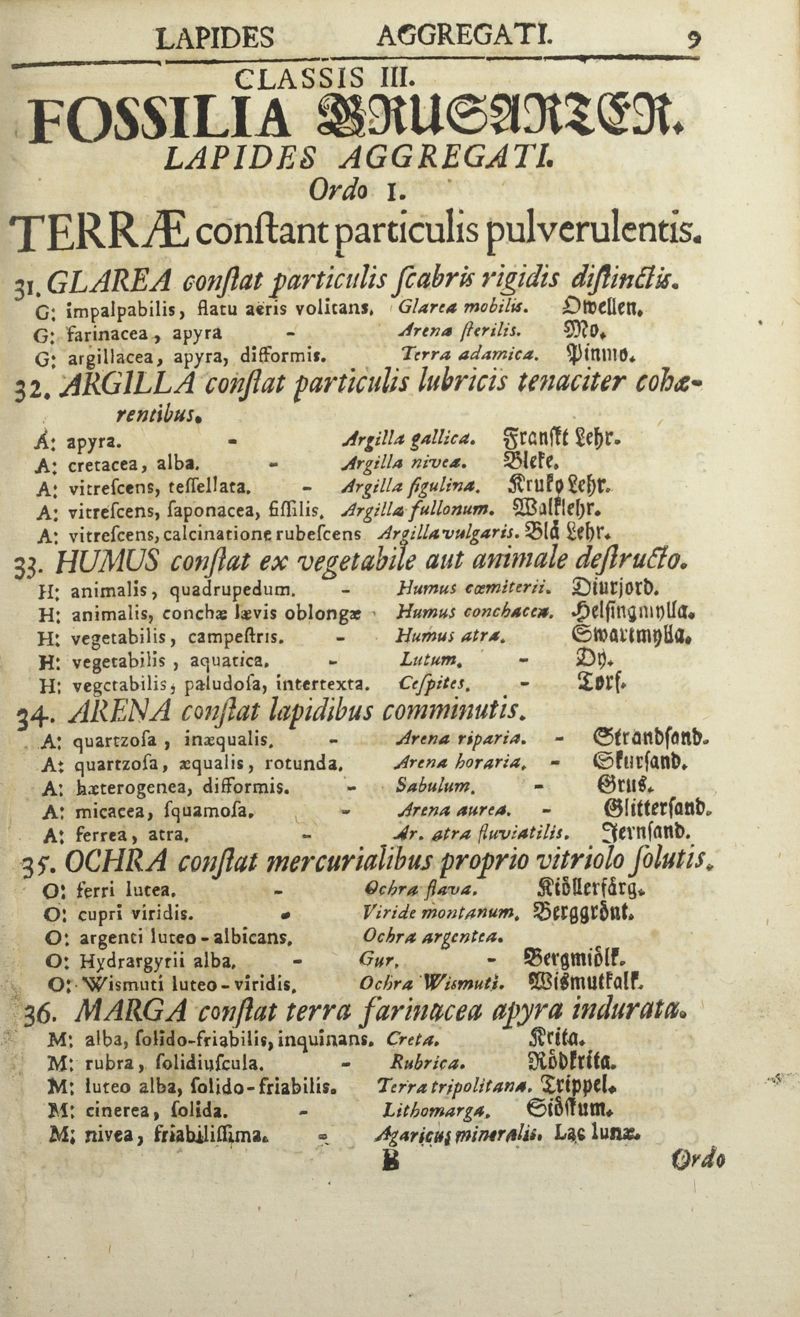 LAPIDES AGGREGATI. 9
CLASSIS III.
FOSSILIA
LAPIDES AGGREGATI.
Ordo 1.
TERRÆ conſtant particulis pulverulentis.
31. GLAREA conſtat particulis ſcabris rigidis diſtinctis.
G: impalpabilis, flatu aëris volitans. Glarea mobilis. Dwellen.
G: farinacea, apyra - Arena ſterilis. Mo.
G: argillacea, apyra, difformis. Terra adamica. Pinmo.
32. ARGILLA conſtat particulis lubricis tenaciter cohæ-
rentibus.
A: apyra. - Argilla gallica. Franſkt Lehr.
A: cretacea, alba. - Argilla nivea. Bleke.
A: vitreſcens, teſſellata. - Argilla figulina. Kruko Lehr.
A: vitreſcens, ſaponacea, fiſſilis. Argilla fullonum. Walklehr.
A: vitreſcens, calcinatione rubeſcens Argilla vulgaris. Blå Lehr.
33. HUMUS conſtat ex vegetabile aut animale deſtructo.
H: animalis, quadrupedum. - Humus cœmiterii. Diurjord.
H: animalis, conchæ lævis oblongæ - Humus conchacea. Helſingmylla.
H: vegetabilis, campeſtris. - Humus atra. Swartmylla.
H: vegetabilis, aquatica. - Lutum. - Dy.
H: vegetabilis, paludoſa, intertexta. Ceſpites. - Torf.
34. ARENA conſtat lapidibus comminutis.
A: quartzoſa, inæqualis. - Arena riparia. - Strandſand.
A: quartzoſa, æqualis, rotunda. Arena horaria. - Skurſand.
A: hæterogenea, difformis. - Sabulum. - Grus.
A: micacea, ſquamoſa. - Arena aurea. - Glitterſand.
A: ferrea, atra. - Ar. atra fluviatilis. Jernſand.
35. OCHRA conſtat mercurialibus proprio vitriolo ſolutis.
O: ferri lutea. - Ochra flava. Kiöllerfärg.
O: cupri viridis. - Viride montanum. Berggrönt.
O: argenti luteo-albicans. Ochra argentea.
O: Hydrargyrii alba. - Gur. - Bergmiölk.
O: Wismuti luteo-viridis. Ochra Wismuti. Wismutkalk.
36. MARGA conſtat terra farinacea apyra indurata.
M: alba, ſolido-friabilis, inquinans. Creta. Krita.
M: rubra, ſolidiuſcula. - Rubrica. Rödkrita.
M: luteo alba, ſolido-friabilis. Terra tripolitana. Trippel.
M: cinerea, ſolida. - Lithomarga. Siöſkum.
M: nivea, friabiliſſima. - Agaricus mineralis. Lac lunæ.
B Ordo